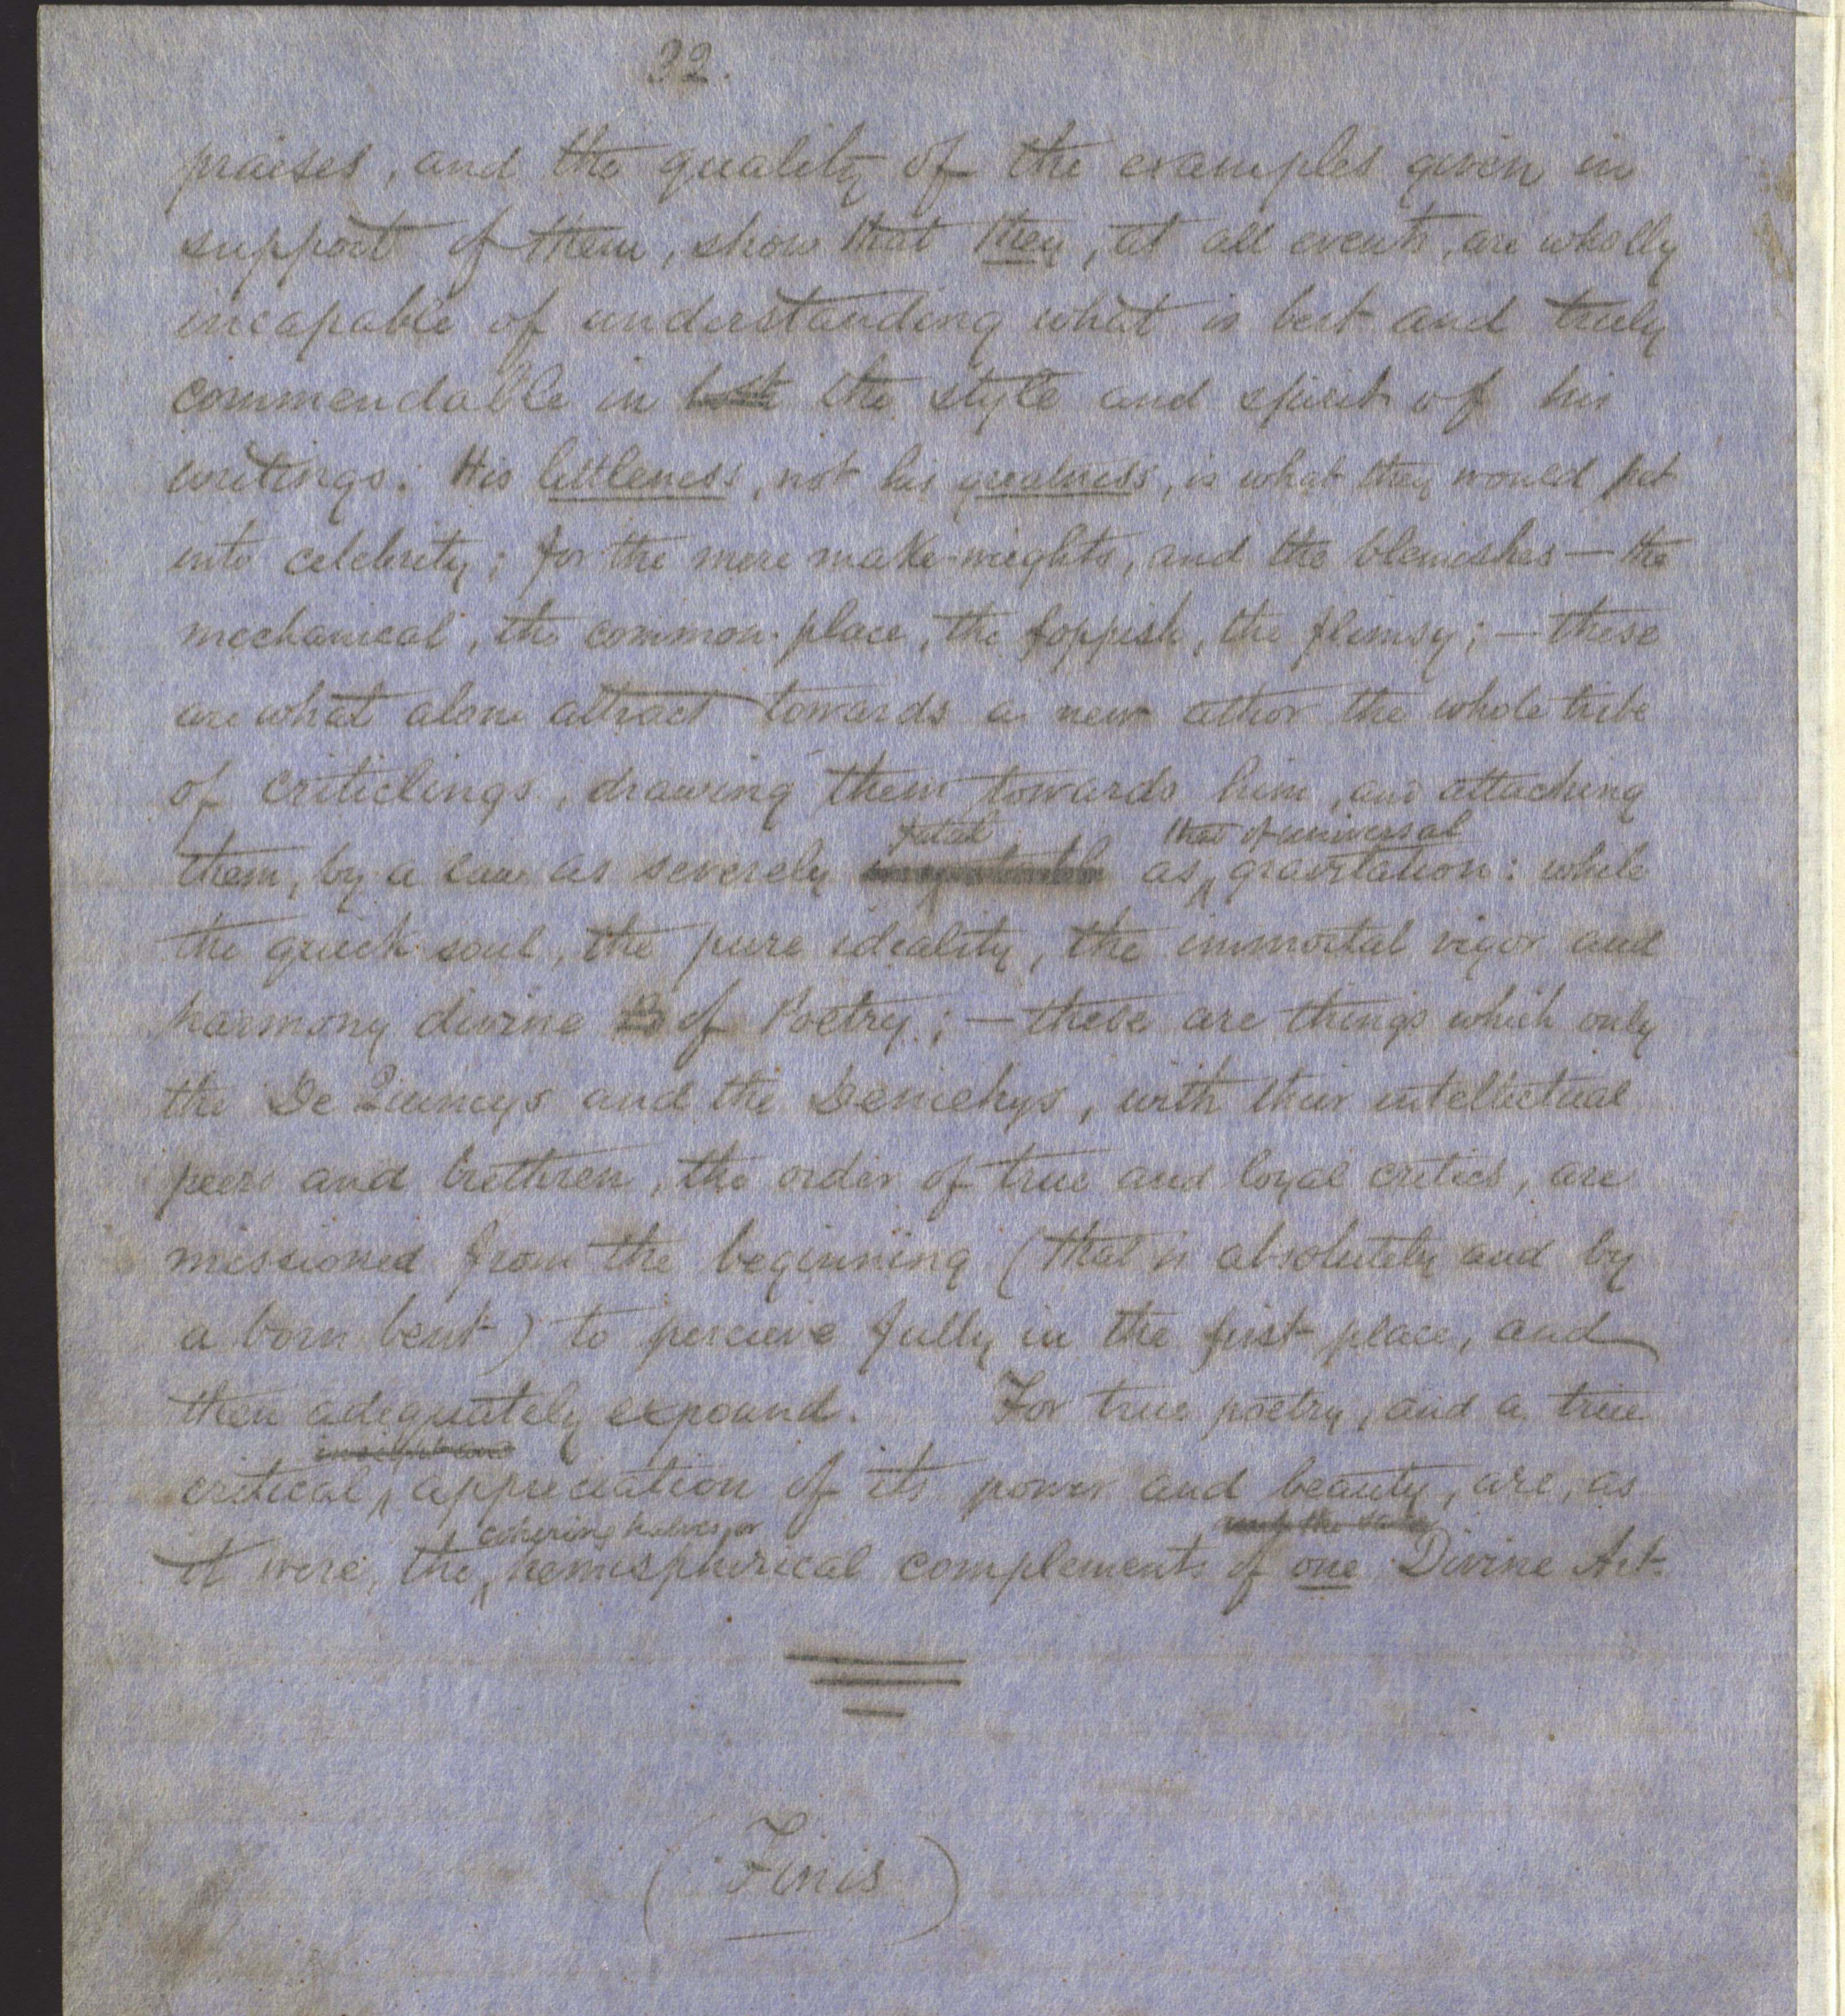 32.
praises, and the quality of the examples given in
support of them, show that they, at all events, are wholly
incapable of understanding what is best and truly
commendable in the style and spirit of his
writings. His littleness, not his greatness, is what they would put
into celebrity; for the mere make-weights, and the blemishes — the
mechanical, the common-place, the foppish, the flimsy; — these
are what alone attract towards a new author the whole tribe
of criticlings, drawing them towards him, and attaching
fatal that of universal
them, by a law as severely as gravitation: while
the quick soul, the pure ideality, the immortal vigor and
harmony divine of Poetry; — these are things which only
the De Quinceys and the Deniehys, with their intellectual
peers and brethren, the order of true and loyal critics, are
missioned from the beginning (that is absolutely and by
a born bent) to percieve fully in the first place, and
then adequately expound. For true poetry, and a true
critical appreciation of its power and beauty, are, as
cohering halves, or
it were, the hemispherical complements of one Divine Art.
(Finis)